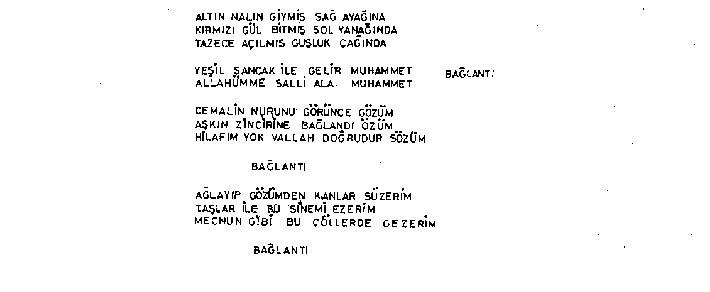 ALTIN NALIN GİYMİŞ SAĞ AYAĞINA
KIRMIZI GÜL BİTMİŞ SOL YANAĞINDA
TAZECE AÇILMIŞ GUŞLUK ÇAĞINDA
YEŞİL SANCAK İLE GELİR MUHAMMET BAĞLANTI
ALLAHÜMME SALLİ ALA MUHAMMET
CEMALİN NURUNU GÖRÜNCE GÖZÜM
AŞKIN ZİNCİRİNE BAĞLANDI ÖZÜM
HİLAFIM YOK VALLAH DOĞRUDUR SÖZÜM
BAĞLANTI
AĞLAYIP GÖZÜMDEN KANLAR SÜZERİM
TAŞLAR İLE BU SİNEMİ EZERİM
MECNUN GİBİ BU ÇÖLLERDE GEZERİM
BAĞLANTI